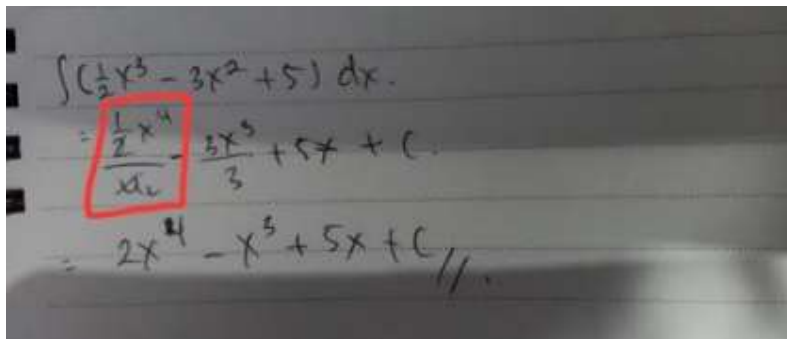 ∫(½x³ - 3x² + 5) dx.
= ½x⁴/ - 3x³/3 + 5x + C.
= 2x⁴ - x³ + 5x + C //.